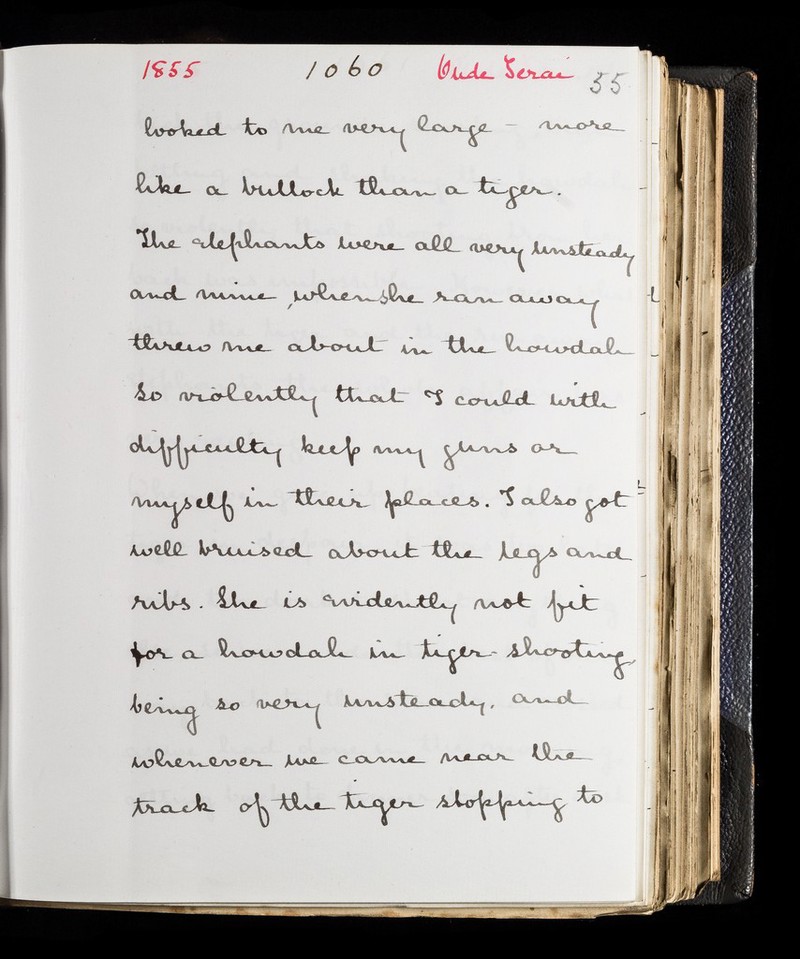 1855 1060 Oude Terai 55
looked to me very large - more
like a bullock than a tiger.
The elephants were all very unsteady
and mine, when she ran away
threw me about in the howdah
so violently that I could with
difficulty keep my guns or
myself in their places. I also got
well bruised about the legs and
ribs. She is evidently not fit
for a howdah in tiger-shooting,
being so very unsteady, and
whenever we came near the
track of the tiger stopping to